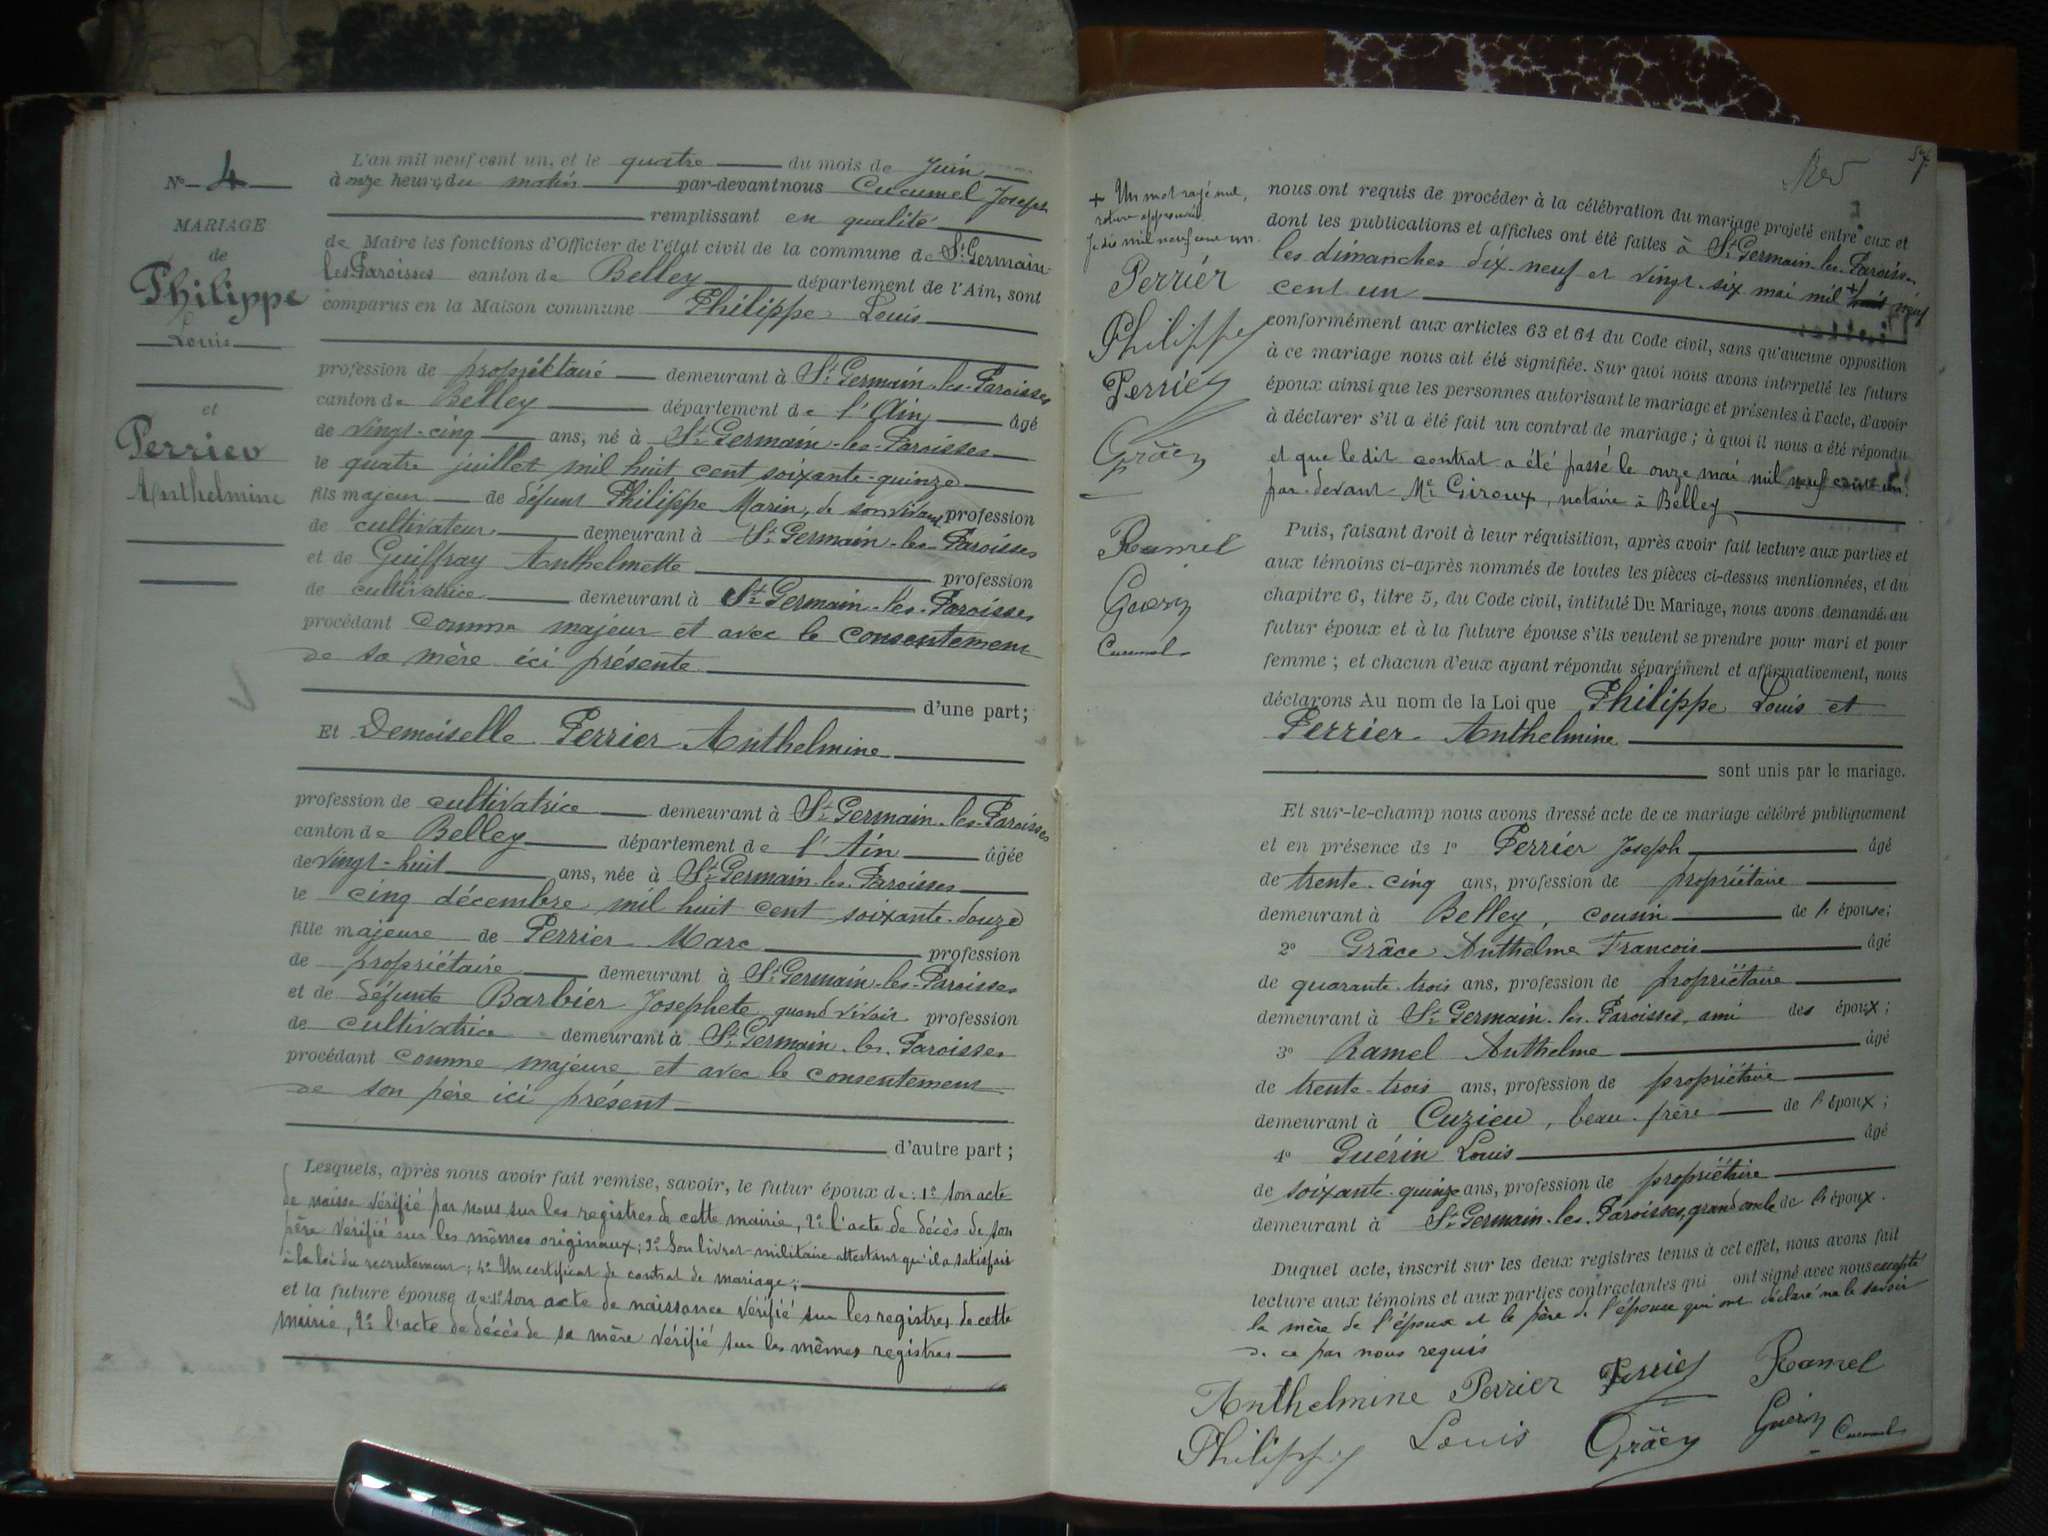 N° 4
MARIAGE
de
Philippe
Louis
et
Perrier
Anthelmine
L'an mil neuf cent un, et le quatre du mois de Juin
à onze heures du matin par-devant nous Cucumel Joseph
remplissant en qualité
de Maire les fonctions d'Officier de l'état civil de la commune de St Germain
les Paroisses canton de Belley département de l'Ain, sont
comparus en la Maison commune Philippe Louis
profession de propriétaire demeurant à St Germain-les-Paroisses
canton de Belley département de l'Ain âgé
de vingt-cinq ans, né à St Germain-les-Paroisses
le quatre juillet mil huit cent soixante-quinze
fils majeur de défunt Philippe Marin, de son vivant profession
de cultivateur demeurant à St Germain-les-Paroisses
et de Guiffray Anthelmette profession
de cultivatrice demeurant à St Germain-les-Paroisses
procédant comme majeur et avec le consentement
de sa mère ici présente
d'une part;
Et Demoiselle Perrier Anthelmine
profession de cultivatrice demeurant à St Germain-les-Paroisses
canton de Belley département de l'Ain âgée
de vingt-huit ans, née à St Germain-les-Paroisses
le cinq décembre mil huit cent soixante-douze
fille majeure de Perrier Marc profession
de propriétaire demeurant à St Germain-les-Paroisses
et de défunte Barbier Josephete quand vivait profession
de cultivatrice demeurant à St Germain-les-Paroisses
procédant comme majeure et avec le consentement
de son père ici présent
d'autre part;
Lesquels, après nous avoir fait remise, savoir, le futur époux de: 1° son acte
de naisse vérifié par nous sur les registres de cette mairie, 2° l'acte de décès de son
père vérifié sur les mêmes originaux; 3° Son livret militaire attestant qu'il a satisfait
à la loi du recrutement; 4° Un certificat de contrat de mariage;
et la future épouse de: 1° son acte de naissance vérifié sur les registres de cette
mairie, 2° l'acte de décès de sa mère vérifié sur les mêmes registres
57
+ Un mot rayé nul,
approuvé
Je dis mil neuf cent un
Perrier
Philippe
Perrier
Grâce
Ramel
Guérin
Cucumel
nous ont requis de procéder à la célébration du mariage projeté entre eux et
dont les publications et affiches ont été faites à St Germain-les-Paroisses
les dimanches dix-neuf et vingt-six mai mil + huit neuf
cent un
conformément aux articles 63 et 64 du Code civil, sans qu'aucune opposition
à ce mariage nous ait été signifiée. Sur quoi nous avons interpellé les futurs
époux ainsi que les personnes autorisant le mariage et présentes à l'acte, d'avoir
à déclarer s'il a été fait un contrat de mariage; à quoi il nous a été répondu
et que le dit contrat a été passé le onze mai mil neuf cent un
par devant Me Giroux, notaire à Belley
Puis, faisant droit à leur réquisition, après avoir fait lecture aux parties et
aux témoins ci-après nommés de toutes les pièces ci-dessus mentionnées, et du
chapitre 6, titre 5, du Code civil, intitulé Du Mariage, nous avons demandé au
futur époux et à la future épouse s'ils veulent se prendre pour mari et pour
femme; et chacun d'eux ayant répondu séparément et affirmativement, nous
déclarons Au nom de la Loi que Philippe Louis et
Perrier Anthelmine
sont unis par le mariage.
Et sur-le-champ nous avons dressé acte de ce mariage célébré publiquement
et en présence de 1° Perrier Joseph âgé
de trente-cinq ans, profession de propriétaire
demeurant à Belley, cousin de l'épouse;
2° Grâce Anthelme Francois âgé
de quarante-trois ans, profession de propriétaire
demeurant à St Germain-les-Paroisses, ami des époux;
3° Ramel Anthelme âgé
de trente-trois ans, profession de propriétaire
demeurant à Cuzieu, beau-frère de l'époux;
4° Guérin Louis âgé
de soixante-quinze ans, profession de propriétaire
demeurant à St Germain-les-Paroisses, grand oncle de l'époux.
Duquel acte, inscrit sur les deux registres tenus à cet effet, nous avons fait
lecture aux témoins et aux parties contractantes qui ont signé avec nous excepté
la mère de l'époux et le père de l'épouse qui ont déclaré ne le savoir
de ce par nous requis
Anthelmine Perrier Perrier Ramel
Philippe Louis Grâce Guérin Cucumel